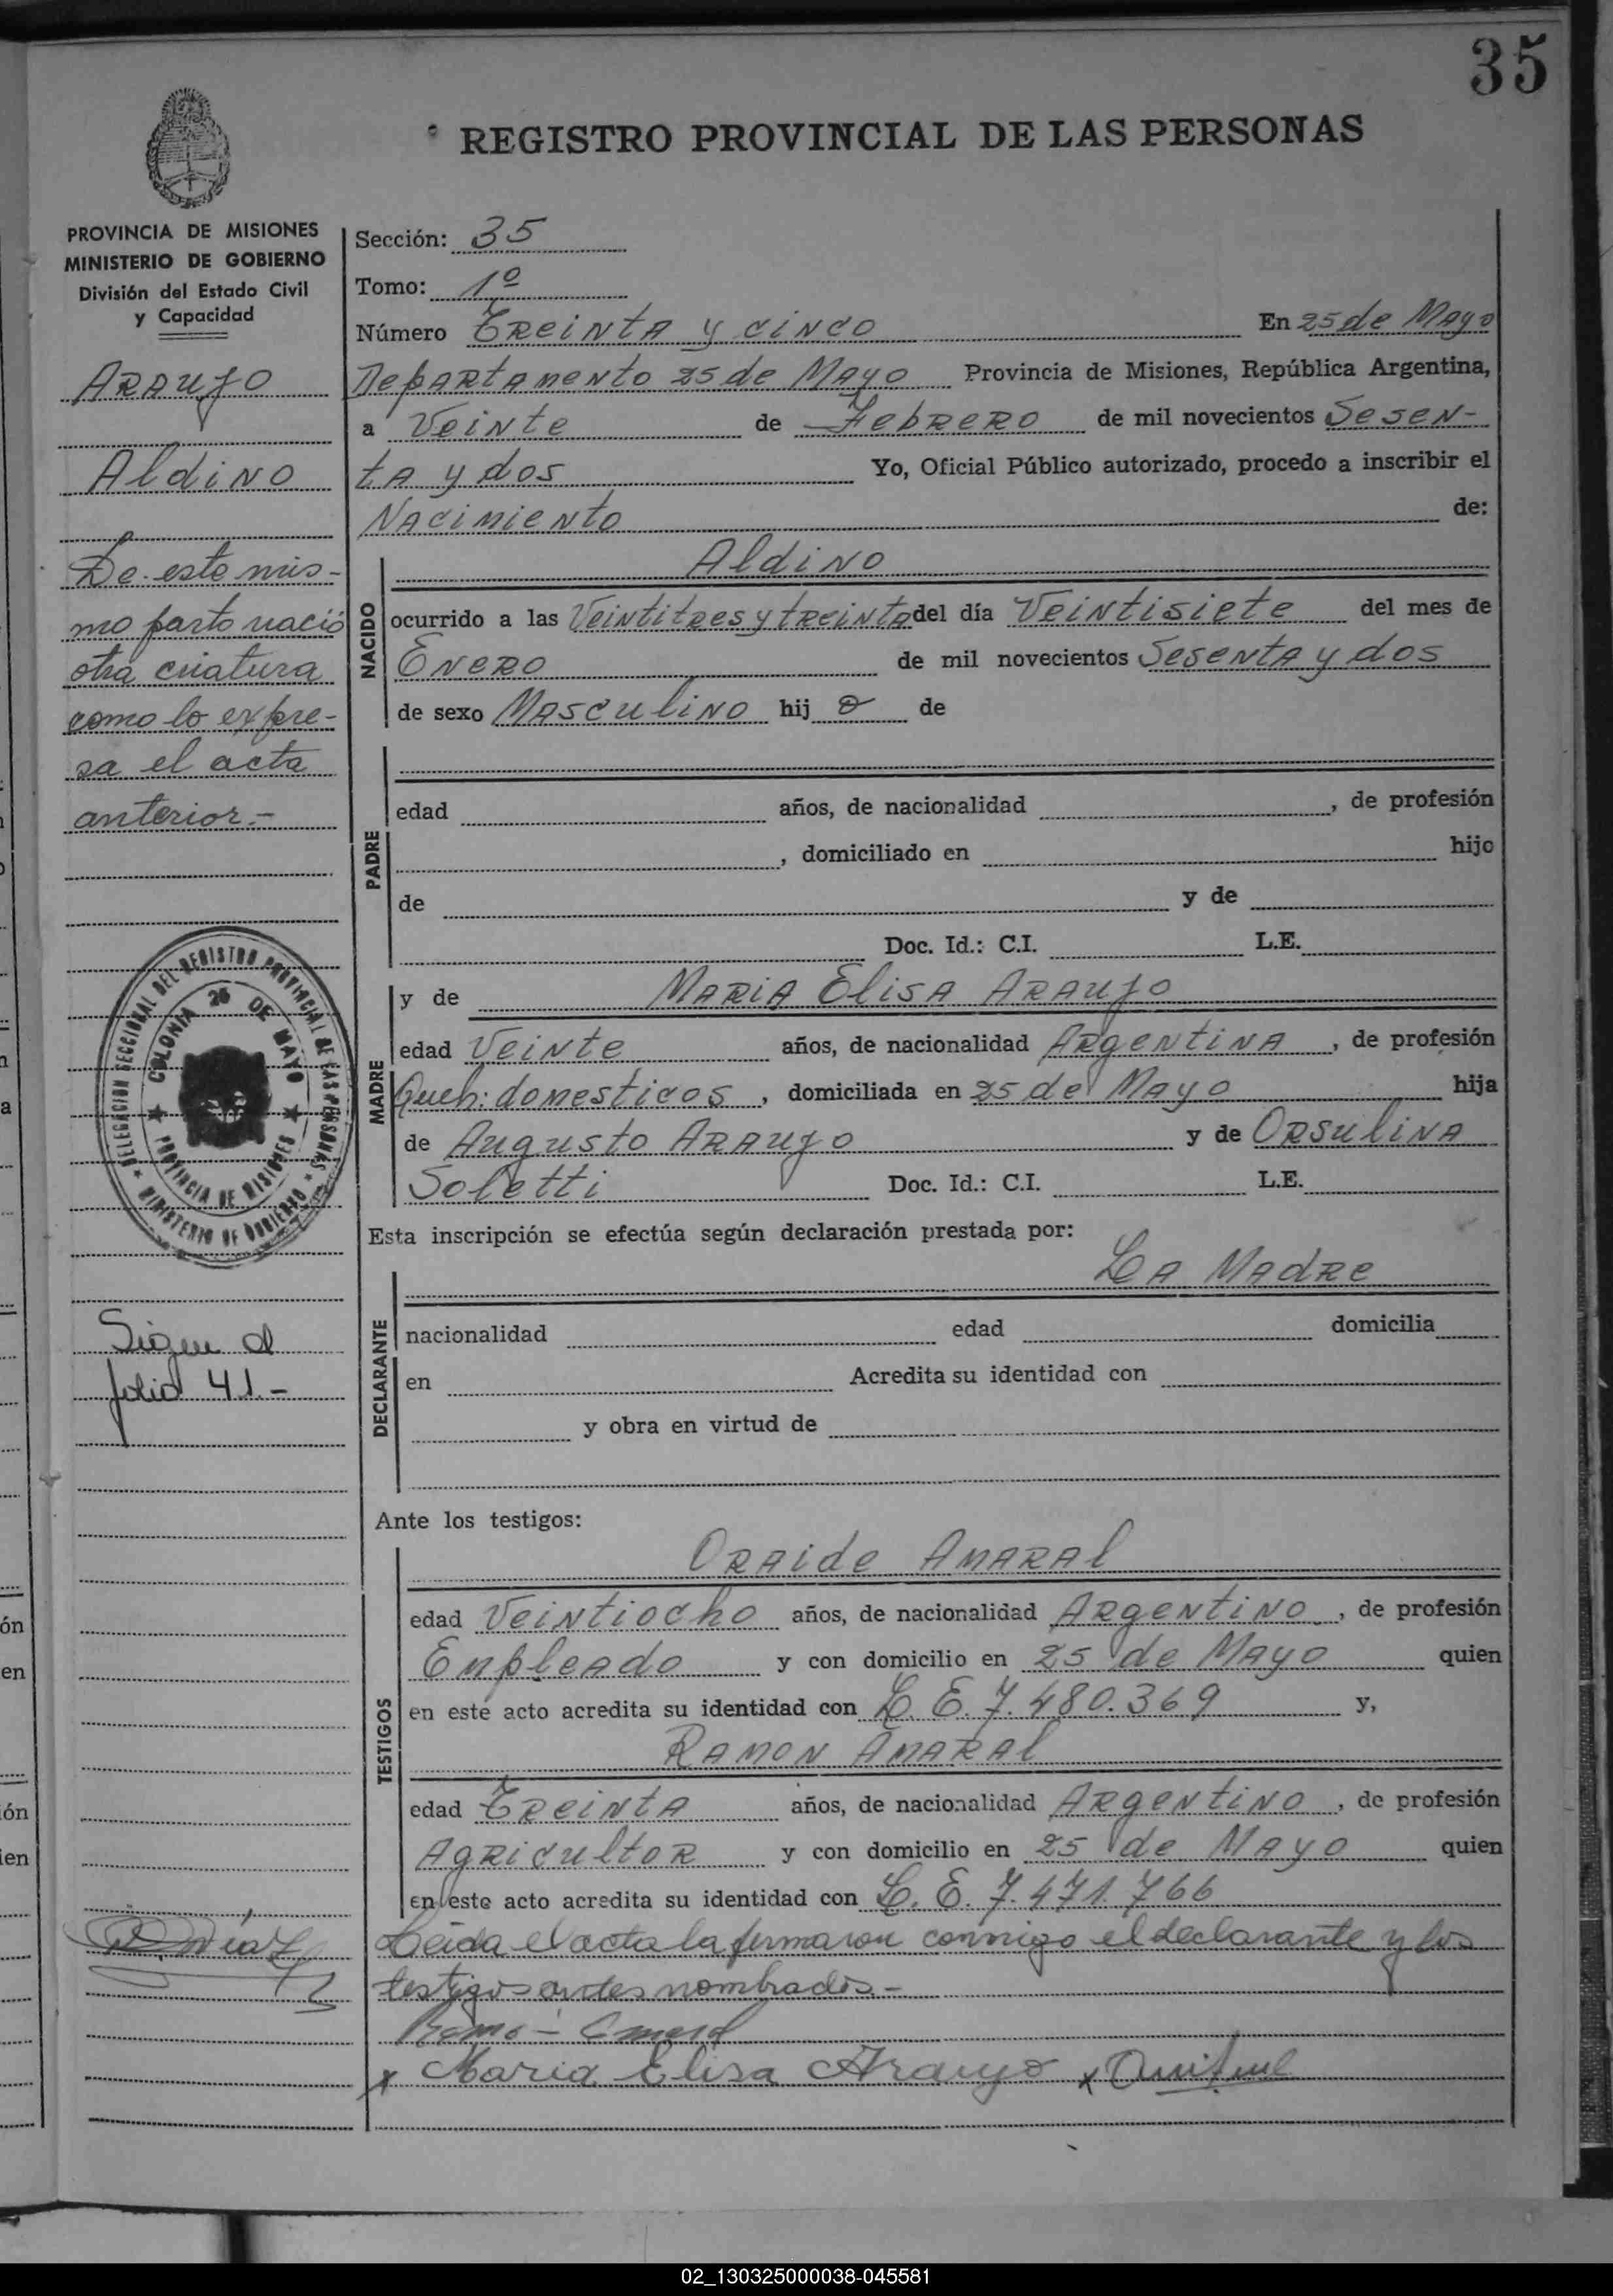 35
REGISTRO PROVINCIAL DE LAS PERSONAS
PROVINCIA DE MISIONES
MINISTERIO DE GOBIERNO
División del Estado Civil
y Capacidad
Araujo
Aldino
De este mis-
mo parto nació
otra criatura
como lo expre-
sa el acta
anterior.-
DELEGACION SECCIONAL DEL REGISTRO PROVINCIAL DE LAS PERSONAS
MINISTERIO DE GOBIERNO
COLONIA 25 DE MAYO
PROVINCIA DE MISIONES
Sigue al
folio 41.-
Sección: 35
Tomo: 1º
Número Treinta y cinco En 25 de Mayo
Departamento 25 de Mayo Provincia de Misiones, República Argentina,
a Veinte de Febrero de mil novecientos Sesen-
ta y dos Yo, Oficial Público autorizado, procedo a inscribir el
Nacimiento de:
NACIDO
Aldino
ocurrido a las Veintitres y treinta del día Veintisiete del mes de
Enero de mil novecientos Sesenta y dos
de sexo Masculino hij o de
PADRE
edad años, de nacionalidad , de profesión
, domiciliado en hijo
de y de
Doc. Id.: C.I. L.E.
MADRE
y de Maria Elisa Araujo
edad Veinte años, de nacionalidad Argentina, de profesión
Queh: domesticos, domiciliada en 25 de Mayo hija
de Augusto Araujo y de Orsulina
Soletti Doc. Id.: C.I. L.E.
Esta inscripción se efectúa según declaración prestada por:
La Madre
DECLARANTE
nacionalidad edad domicilia
en Acredita su identidad con
y obra en virtud de
Ante los testigos:
TESTIGOS
Oraide Amaral
edad Veintiocho años, de nacionalidad Argentino, de profesión
Empleado y con domicilio en 25 de Mayo quien
en este acto acredita su identidad con L. E. 7.480.369 y,
Ramon Amaral
edad Treinta años, de nacionalidad Argentino, de profesión
Agricultor y con domicilio en 25 de Mayo quien
en este acto acredita su identidad con L. E. 7.471.766
Leida el acta la firmaron conmigo el declarante y los
testigos antes nombrados.-
x Maria Elisa Araujo x
02_130325000038-045581